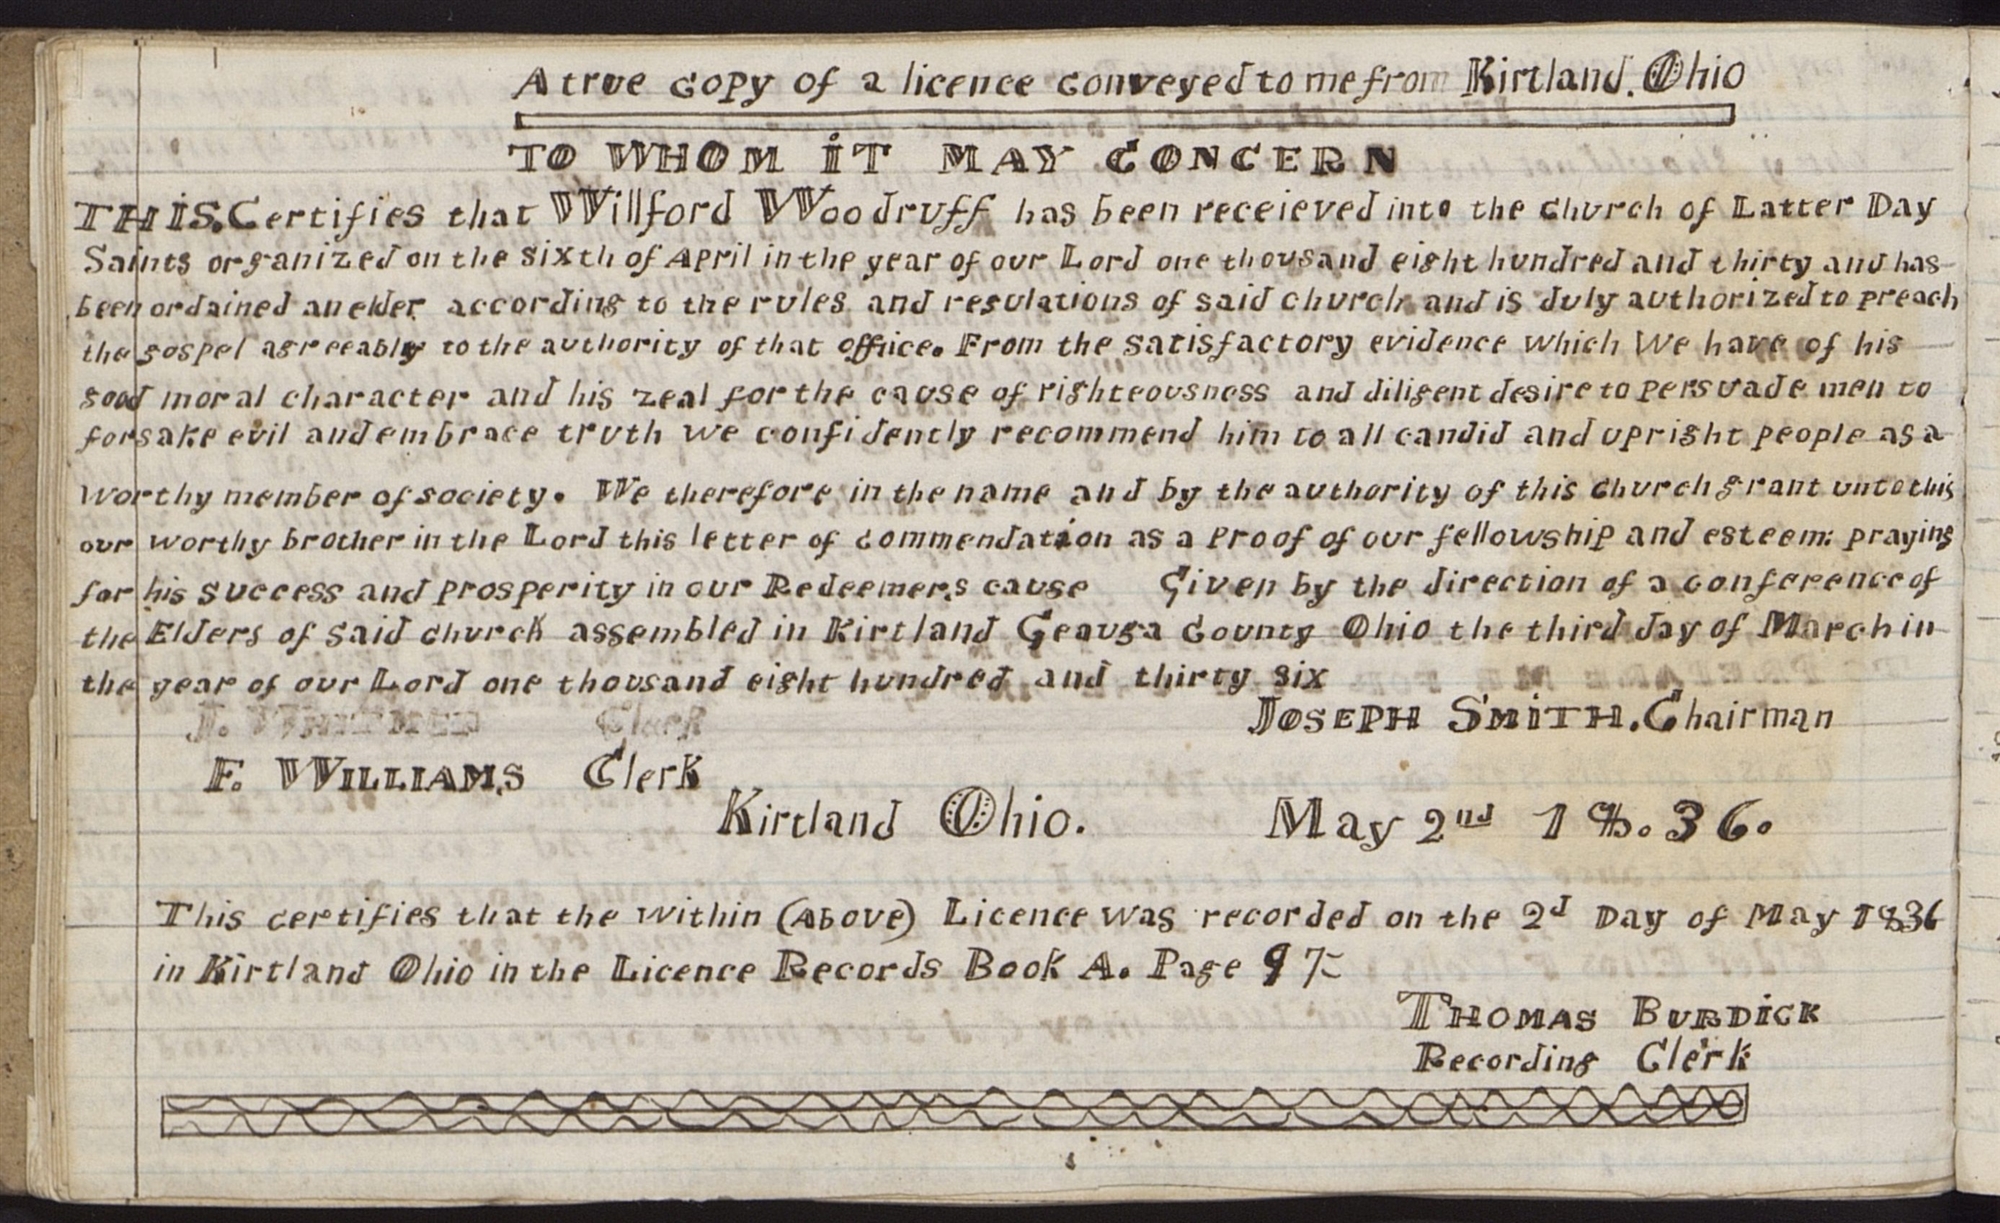 A true copy of a licence conveyed to me from Kirtland. Ohio
TO WHOM IT MAY CONCERN
THIS. Certifies that Willford Woodruff has been receieved into the church of Latter Day
Saints organized on the sixth of April in the year of our Lord one thousand eight hundred and thirty and has
been ordained an elder according to the rules and regulations of said church and is duly authorized to preach
the gospel agreeably to the authority of that office. From the satisfactory evidence which We have of his
good moral character and his zeal for the cause of righteousness and diligent desire to persuade men to
forsake evil and embrace truth we confidently recommend him to all candid and upright people as a
worthy member of society. We therefore in the name and by the authority of this church grant unto this
our worthy brother in the Lord this letter of commendation as a proof of our fellowship and esteem: praying
for his success and prosperity in our Redeemers cause Given by the direction of a conference of
the Elders of said church assembled in Kirtland Geauga County Ohio the third day of March in
the year of our Lord one thousand eight hundred and thirty six
JOSEPH SMITH. Chairman
Clerk
F. WILLIAMS Clerk
Kirtland Ohio. May 2nd 18.36.
This certifies that the within (above) Licence was recorded on the 2d Day of May 1836
in Kirtland Ohio in the Licence Records Book A. Page 97
THOMAS BURDICK
Recording Clerk